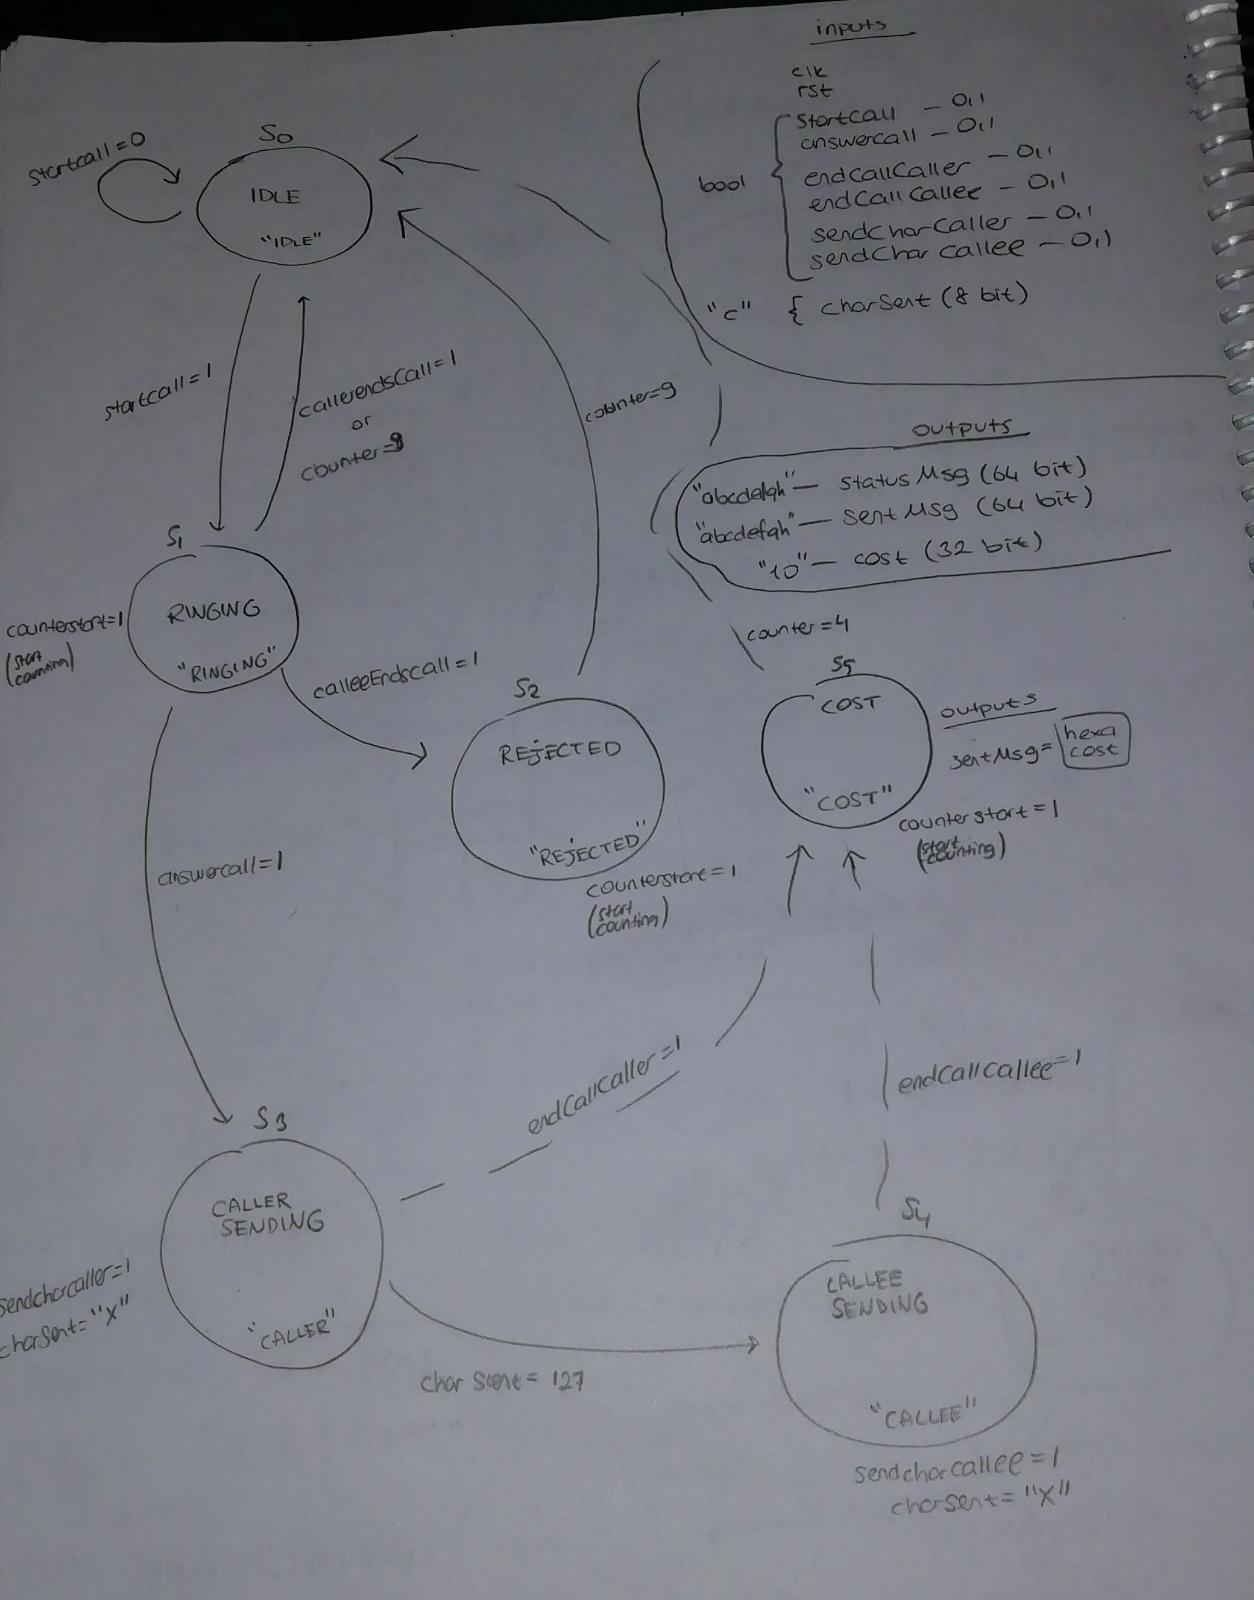 inputs
clk
rst
startCall – 0,1
answercall – 0,1
bool
endCallCaller – 0,1
endCallCallee – 0,1
sendCharCaller – 0,1
sendChar Callee – 0,1
"c" { charSent (8 bit)
outputs
"abcdefgh" — status Msg (64 bit)
"abcdefgh" — sent Msg (64 bit)
"10" — cost (32 bit)
startcall=0
S0
IDLE
"IDLE"
startcall=1
callerendsCall=1
or
counter=9
counter=9
S1
RINGING
"RINGING"
counterstart=1
(start
counting)
calleeEndscall=1
S2
REJECTED
"REJECTED"
counterstart=1
(start
counting)
counter=4
S5
COST
"COST"
outputs
sentMsg= hexa
cost
counterstart=1
(start
counting)
answercall=1
endCallCaller=1
endCallCallee=1
S3
CALLER
SENDING
"CALLER"
sendcharcaller=1
charSent="X"
char Sent= 127
S4
CALLEE
SENDING
"CALLEE"
sendcharcallee=1
charSent="X"